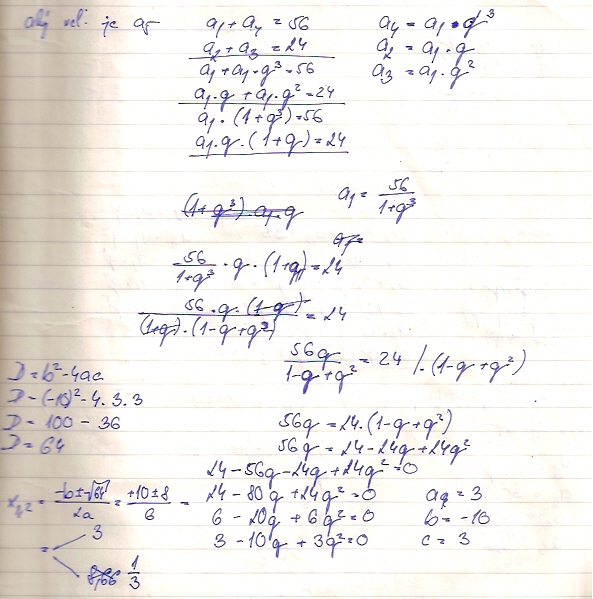 vel. je a₅
a₁ + a₄ = 56
a₄ = a₁ · q³
a₂ + a₃ = 24
a₂ = a₁ · q
a₁ + a₁ · q³ = 56
a₃ = a₁ · q²
a₁ · q + a₁ · q² = 24
a₁ · (1 + q³) = 56
a₁ · q · (1 + q) = 24
(1 + q³) · a₁ · q
a₁ = 56 / 1+q³
56 / 1+q³ · q · (1+q) = 24
56 · q · (1+q) / (1+q) · (1-q+q²) = 24
56q / 1-q+q² = 24 / · (1-q+q²)
56q = 24 · (1-q+q²)
56q = 24 - 24q + 24q²
24 - 56q - 24q + 24q² = 0
24 - 80q + 24q² = 0
6 - 20q + 6q² = 0
3 - 10q + 3q² = 0
a = 3
b = -10
c = 3
D = b² - 4ac
D = (-10)² - 4 · 3 · 3
D = 100 - 36
D = 64
x₁,₂ = -b ± √64 / 2a = +10 ± 8 / 6 =
= 3
1/3